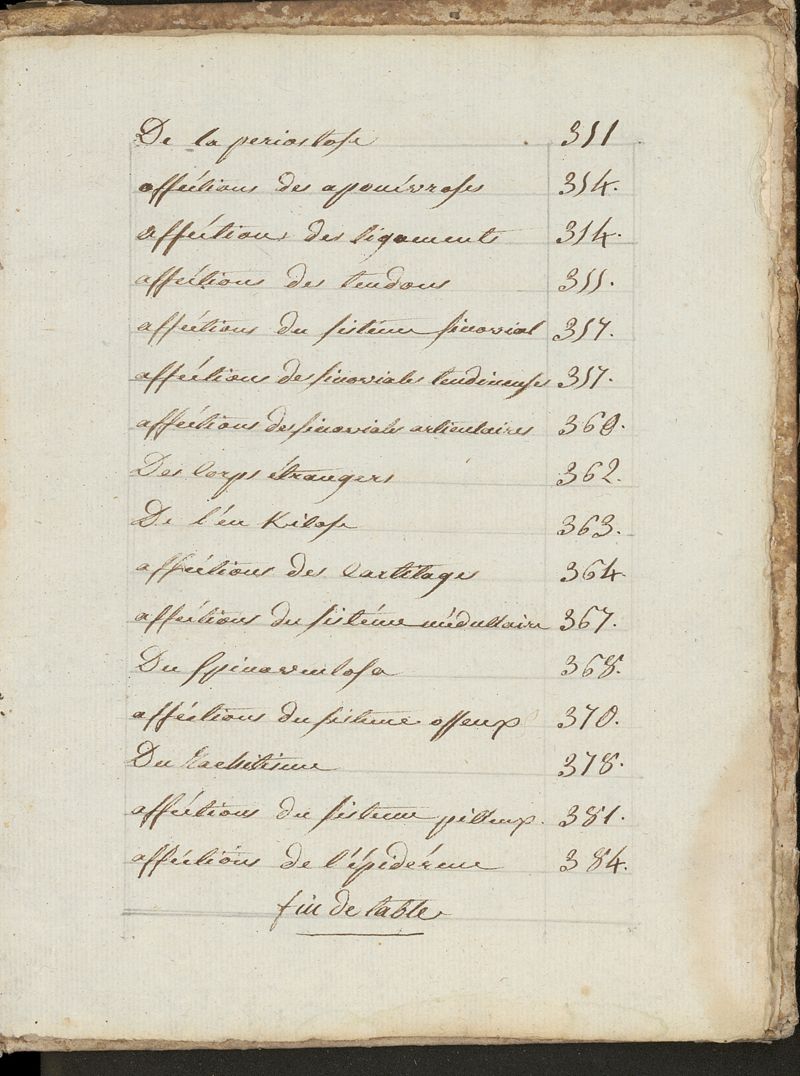 De la periostose 351
afféctions des aponévroses 354.
afféctions des ligaments 354.
afféctions des tendons 355.
afféctions du sistéme sinovial 357.
afféctions des sinoviales tendineuses 357.
afféctions des sinoviales articulaires 360.
Des Corps étrangers 362.
De l'en Kilose 363.
afféctions des Cartilages 364.
afféctions du sistéme médullaire 367.
Du Spinaventosa 368.
afféctions du sisteme osseux 370.
Du Rachitisme 378.
afféctions du sisteme pilleux. 381.
afféctions de l'épiderme 384.
fin de table